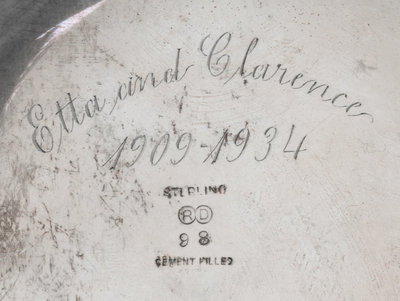 Etta and Clarence
1909-1934
STERLING
RD
98
CEMENT FILLED